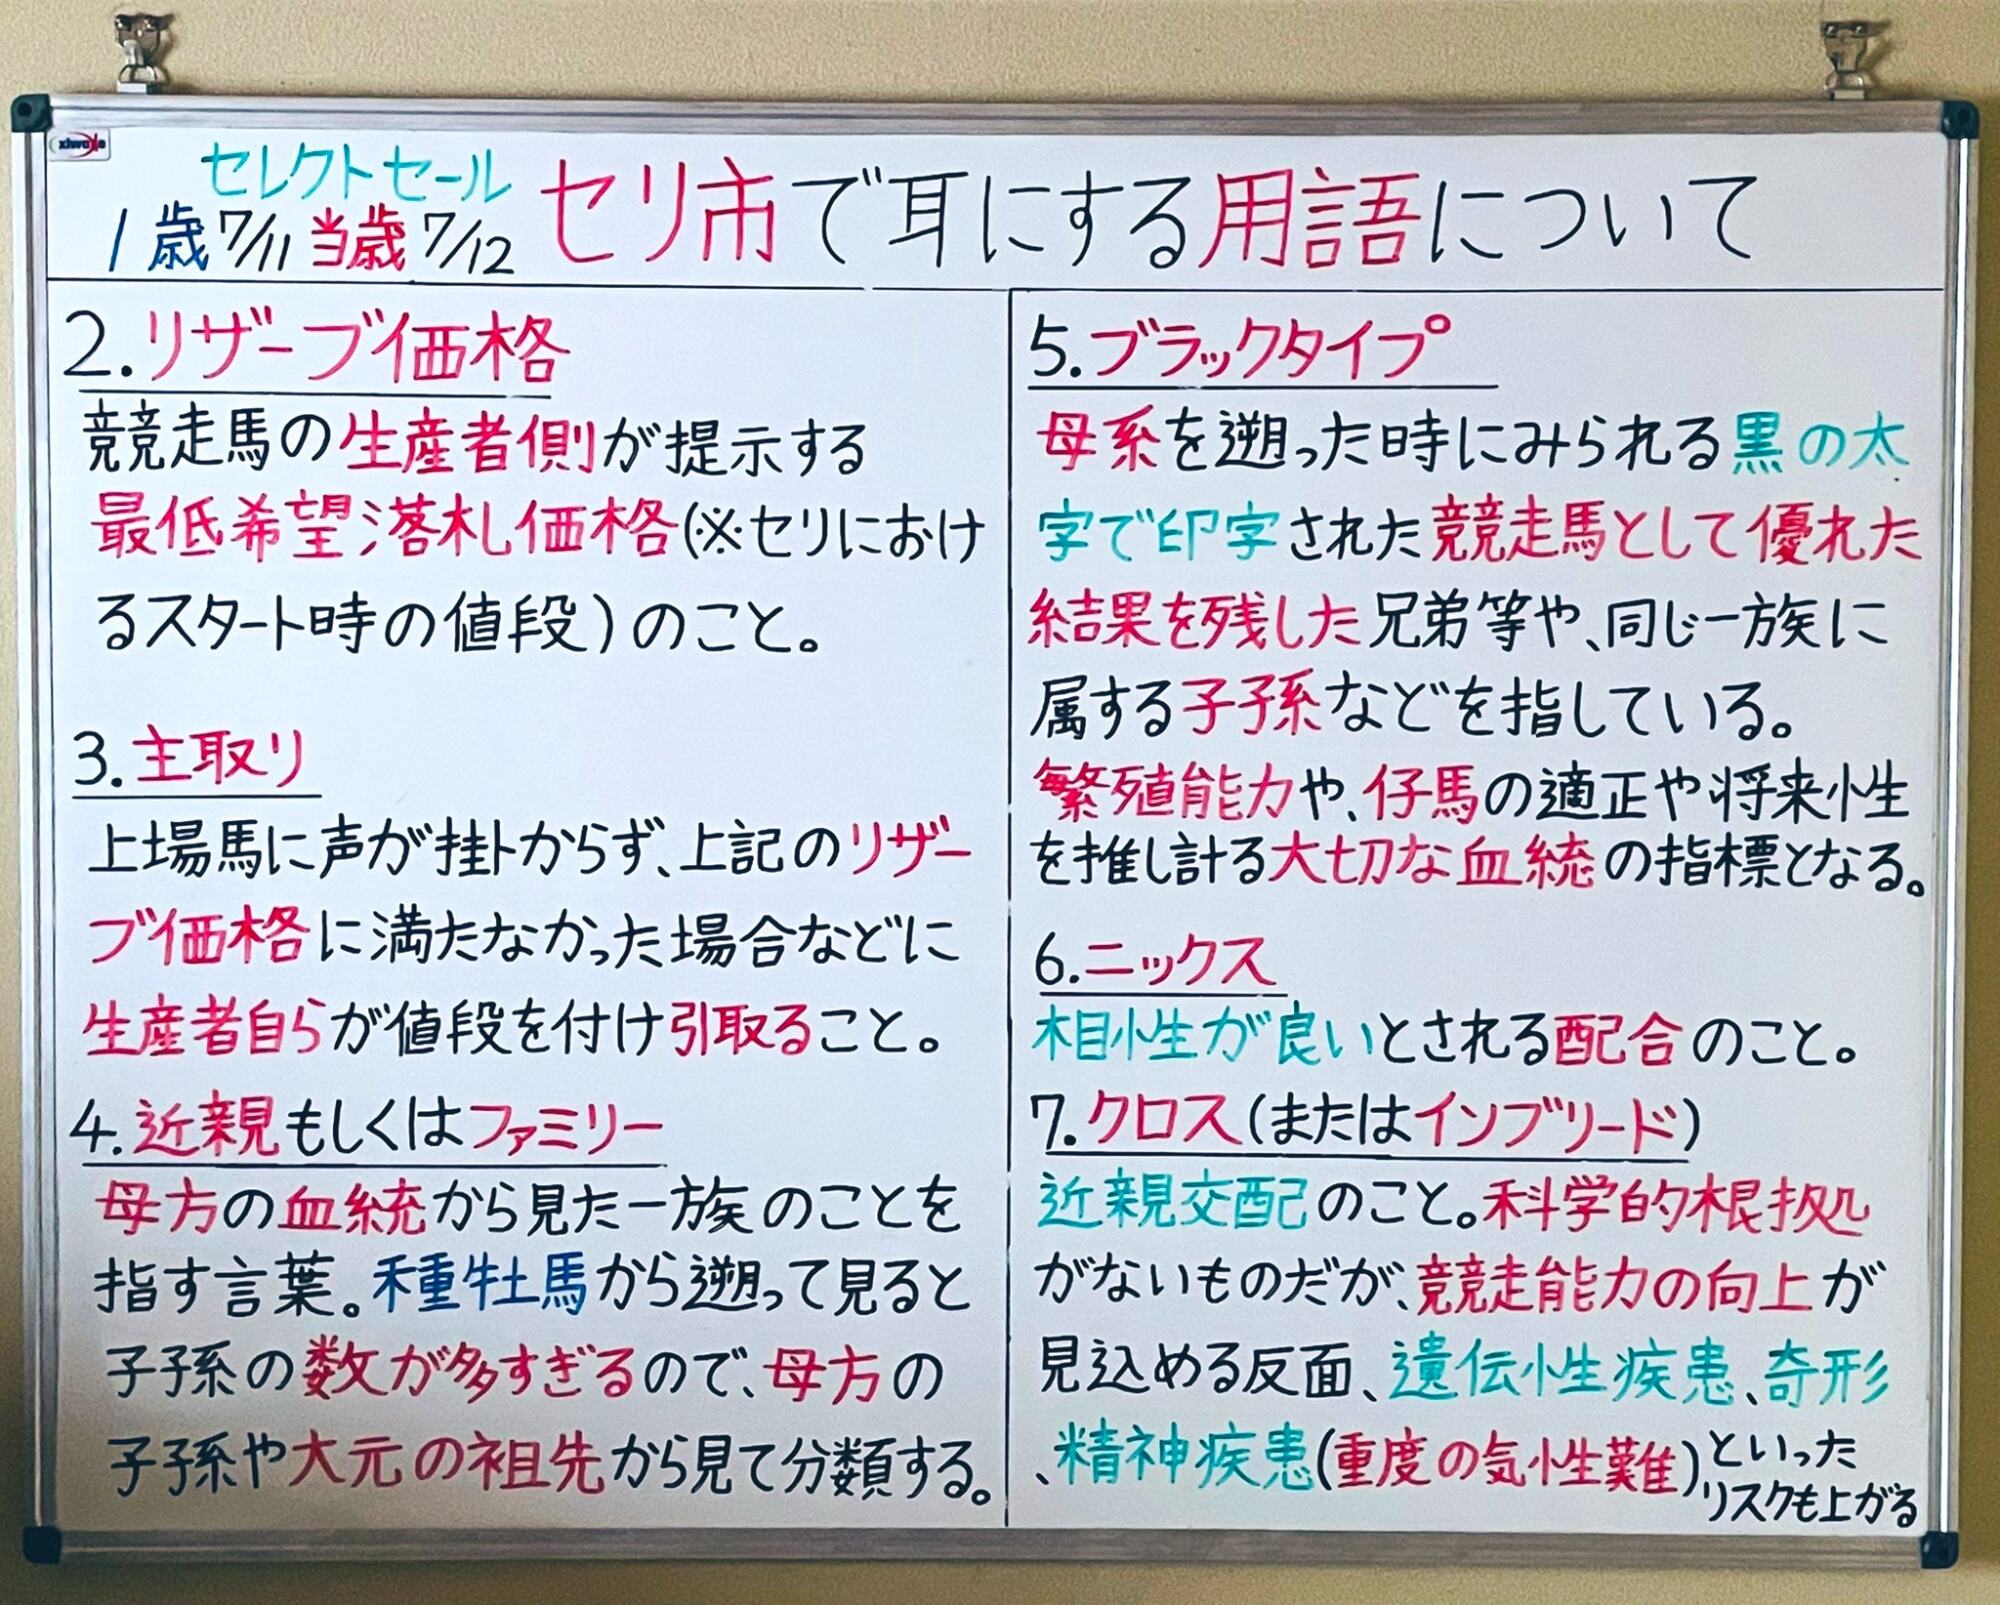 xiwode
セレクトセール
1歳7/11 当歳7/12
セリ市で耳にする用語について
2.リザーブ価格
競走馬の生産者側が提示する
最低希望落札価格(※セリにおけ
るスタート時の値段)のこと。
3.主取り
上場馬に声が掛からず、上記のリザー
ブ価格に満たなかった場合などに
生産者自らが値段を付け引取ること。
4.近親もしくはファミリー
母方の血統から見た一族のことを
指す言葉。種牡馬から遡って見ると
子孫の数が多すぎるので、母方の
子孫や大元の祖先から見て分類する。
5.ブラックタイプ
母系を遡った時にみられる黒の太
字で印字された競走馬として優れた
結果を残した兄弟等や、同じ一族に
属する子孫などを指している。
繁殖能力や、仔馬の適正や将来性
を推し計る大切な血統の指標となる。
6.ニックス
相性が良いとされる配合のこと。
7.クロス(またはインブリード)
近親交配のこと。科学的根拠
がないものだが、競走能力の向上が
見込める反面、遺伝性疾患、奇形
、精神疾患(重度の気性難)といった
リスクも上がる